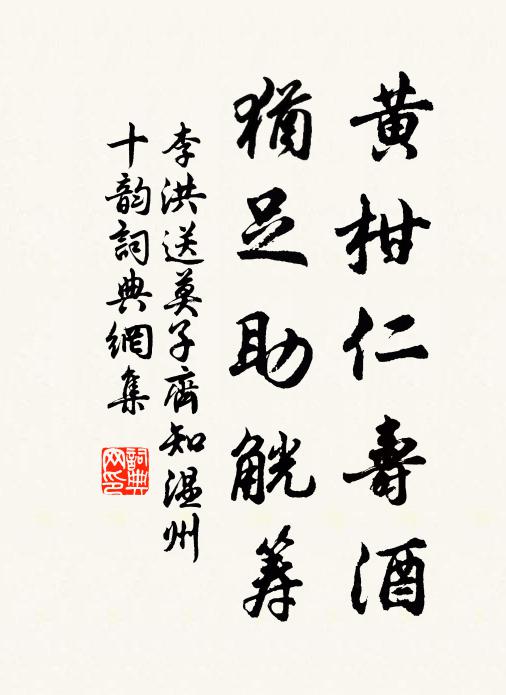 黄柑仁壽酒
猶足助觥筹
李洪送莫子齊知温州
十韵詞典網集
詞典
网印